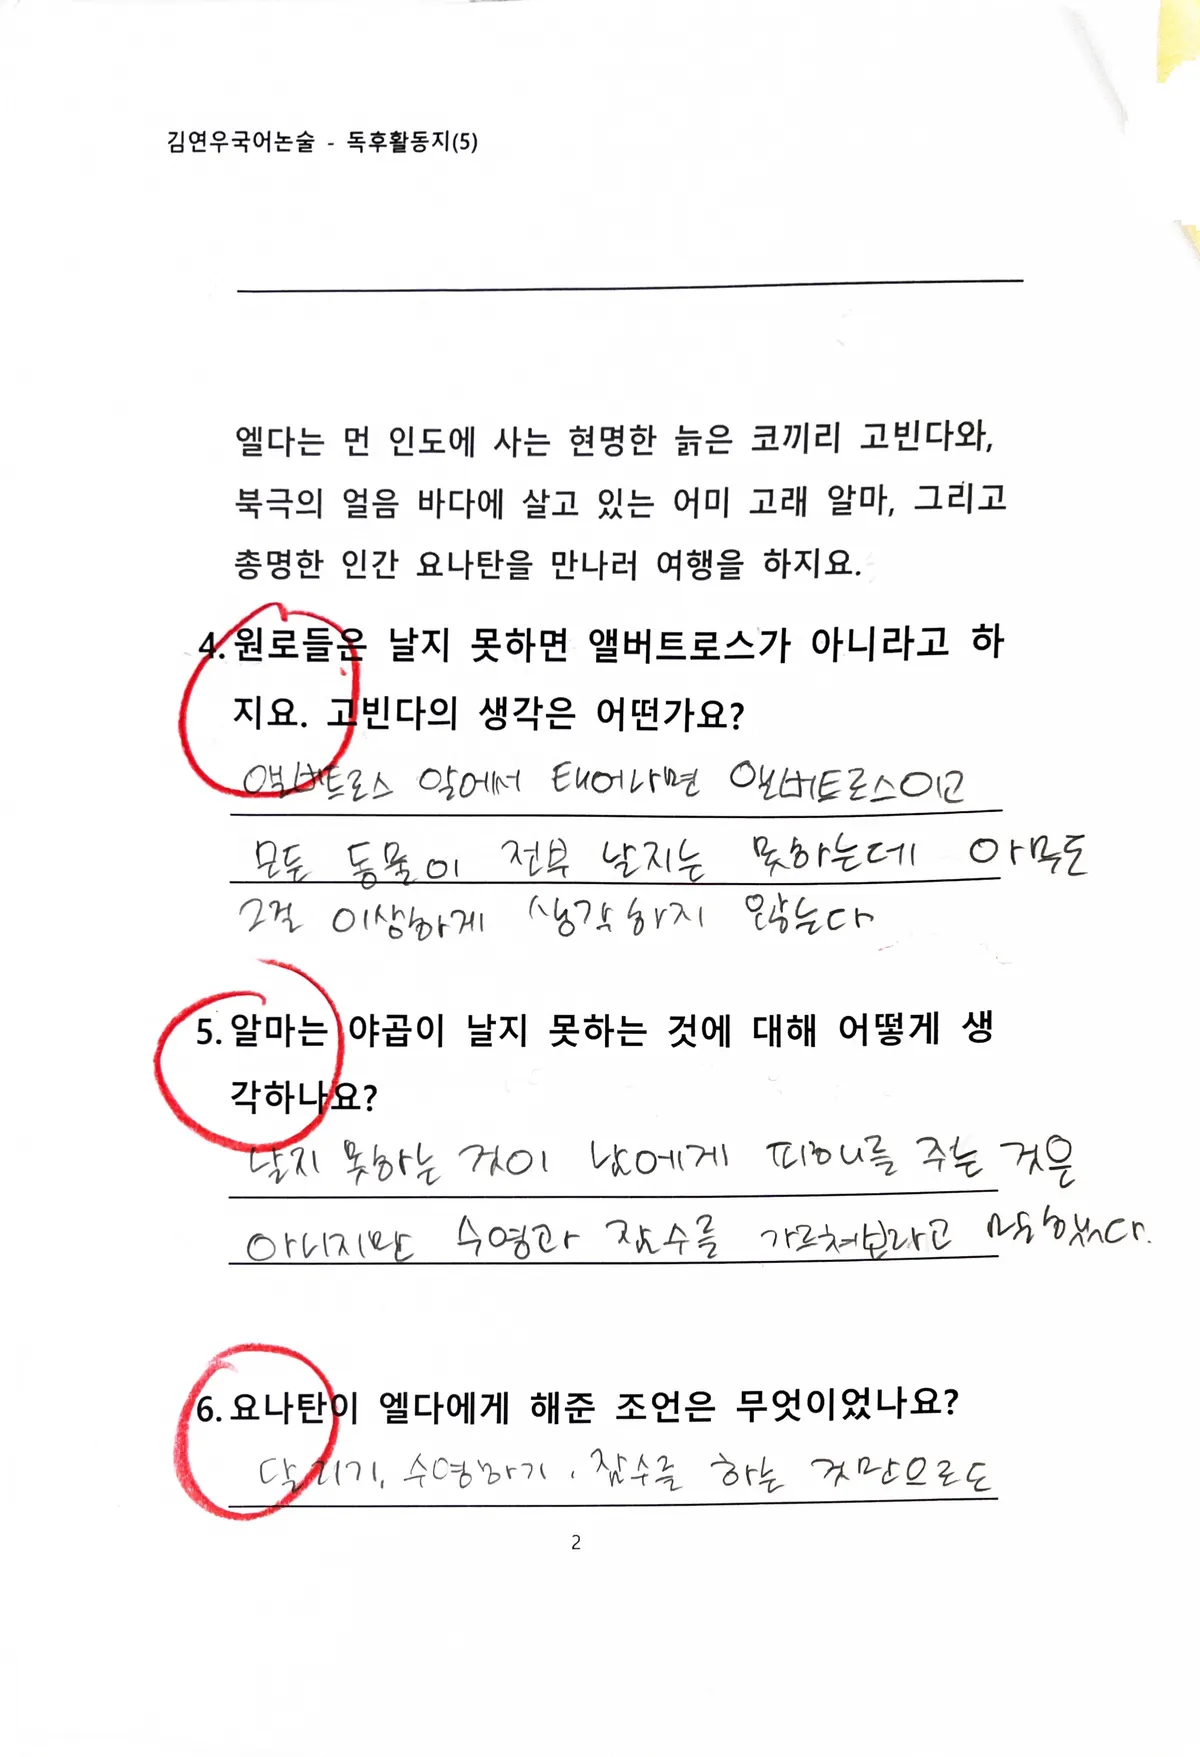 김연우국어논술 - 독후활동지(5)
엘다는 먼 인도에 사는 현명한 늙은 코끼리 고빈다와,
북극의 얼음 바다에 살고 있는 어미 고래 알마, 그리고
총명한 인간 요나탄을 만나러 여행을 하지요.
4. 원로들은 날지 못하면 앨버트로스가 아니라고 하
지요. 고빈다의 생각은 어떤가요?
앨버트로스 알에서 태어나면 앨버트로스이고
모든 동물이 전부 날지는 못하는데 아무도
그걸 이상하게 생각하지 않는다
5. 알마는 야곱이 날지 못하는 것에 대해 어떻게 생
각하나요?
날지 못하는 것이 남에게 피해를 주는 것은
아니지만 수영과 잠수를 가르쳐보라고 말했다.
6. 요나탄이 엘다에게 해준 조언은 무엇이었나요?
달리기, 수영하기, 잠수를 하는 것만으로도
2